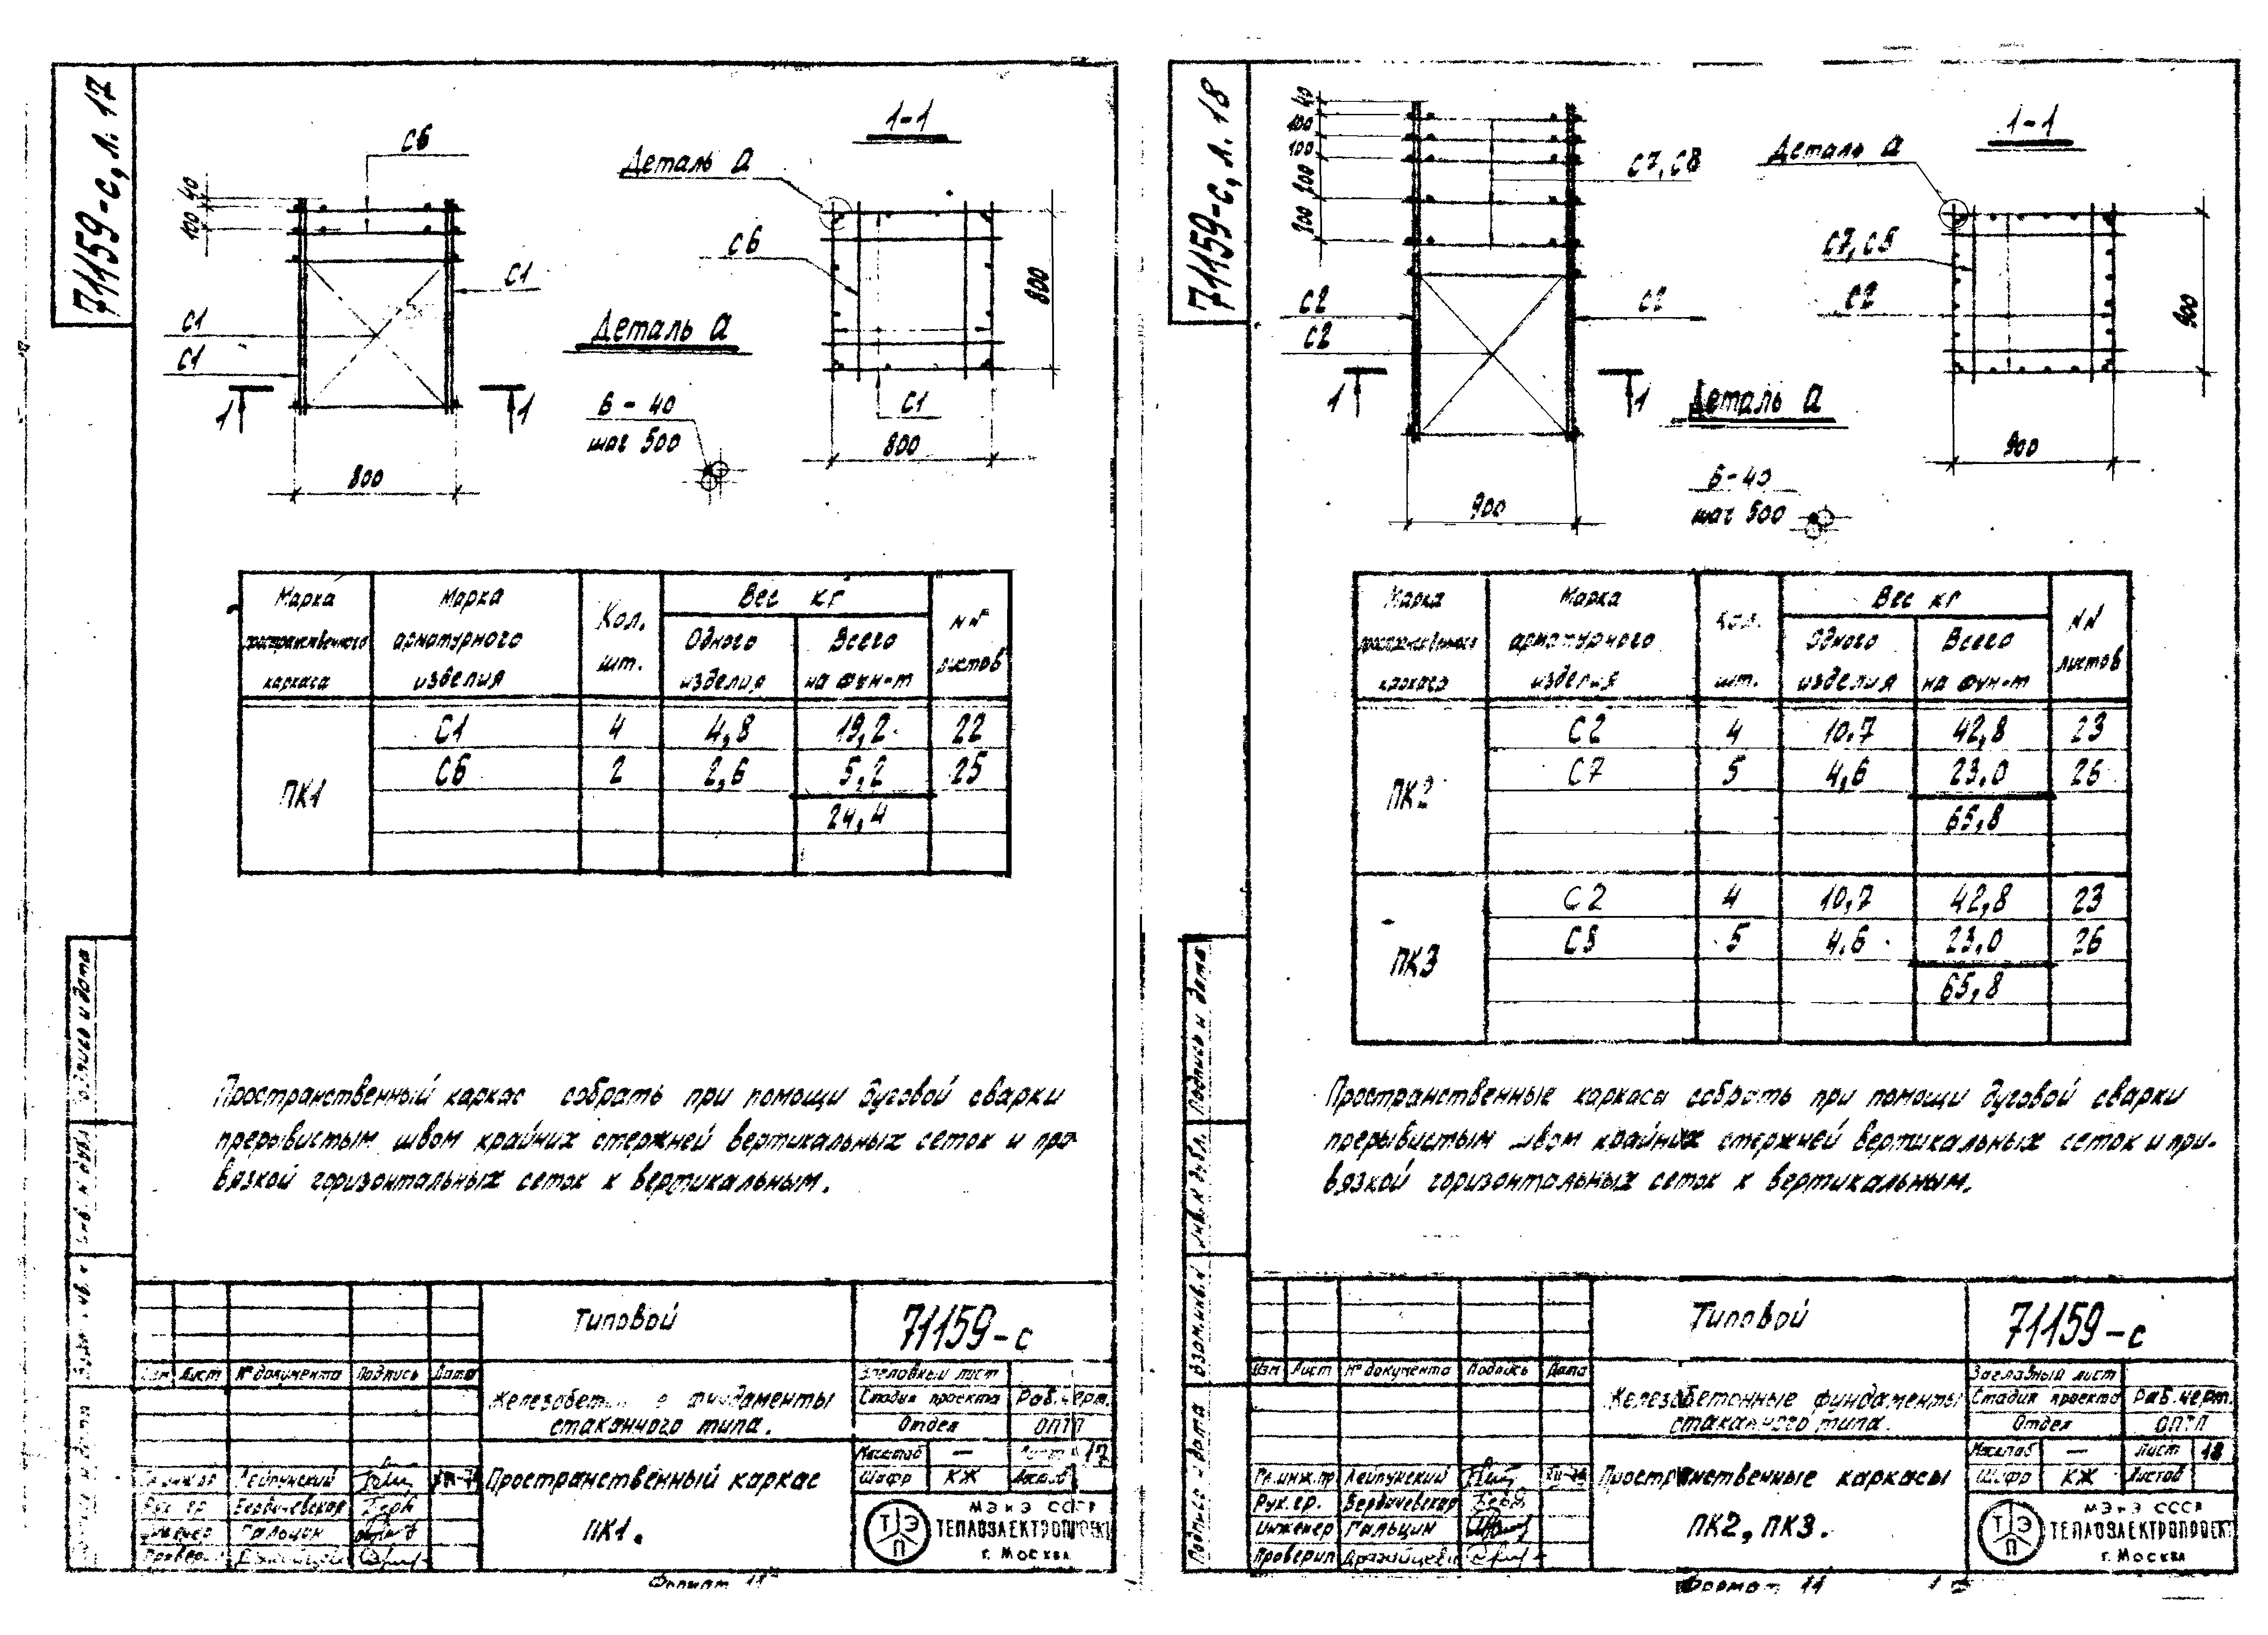 71159-с, л. 17
С6
40
100
С1
С1
С1
1
1
800
1-1
Деталь а
С6
800
С1
800
Деталь а
6 - 40
шаг 500
Марка пространственного каркаса
Марка арматурного изделия
Кол. шт.
Вес кг
Одного изделия
Всего на фун-т
NN листов
ПК1
С1 4 4,8 19,2 22
С6 2 2,6 5,2 25
24,4
Пространственный каркас собрать при помощи дуговой сварки
прерывистым швом крайних стержней вертикальных сеток и при-
вязкой горизонтальных сеток к вертикальным.
Типовой
71159-с
Лист № документа Подпись Дата
Заглавный лист
фундаменты
стаканного типа.
Стадия проекта Раб. черт.
Отдел ОПТП
Масштаб — Лист 17
Шифр КЖ
Пространственный каркас
ПК1.
Лейпунский
Бердичевская
Гальцин
МЭиЭ СССР
ТЭП
ТЕПЛОЭЛЕКТРОПРОЕКТ
г. Москва
Формат 11
71159-с, л. 18
40
100
100
200
200
С7, С8
С2
С2
С2
1
1
900
1-1
Деталь а
С7, С8
С2
900
900
Деталь а
6-40
шаг 500
Марка пространственного каркаса
Марка арматурного изделия
Кол. шт.
Вес кг
Одного изделия
Всего на фун-т
NN листов
ПК2
С2 4 10.7 42,8 23
С7 5 4,6 23,0 26
65,8
ПК3
С2 4 10,7 42,8 23
С8 5 4.6 23,0 26
65,8
Пространственные каркасы собрать при помощи дуговой сварки
прерывистым швом крайних стержней вертикальных сеток и при-
вязкой горизонтальных сеток к вертикальным.
Подпись и дата
Инв. N дубл.
Взам. инв. N
Подпись и дата
Типовой
71159-с
Изм Лист № документа Подпись Дата
Заглавный лист
Железобетонные фундаменты
стаканного типа.
Стадия проекта Раб. черт.
Отдел ОПТП
Масштаб — Лист 18
Шифр КЖ Листов
Пространственные каркасы
ПК2, ПК3.
Гл. инж. пр Лейпунский
Рук. гр. Бердичевская
Инженер Гальцин
Проверил
МЭиЭ СССР
ТЭП
ТЕПЛОЭЛЕКТРОПРОЕКТ
г. Москва
Формат 11